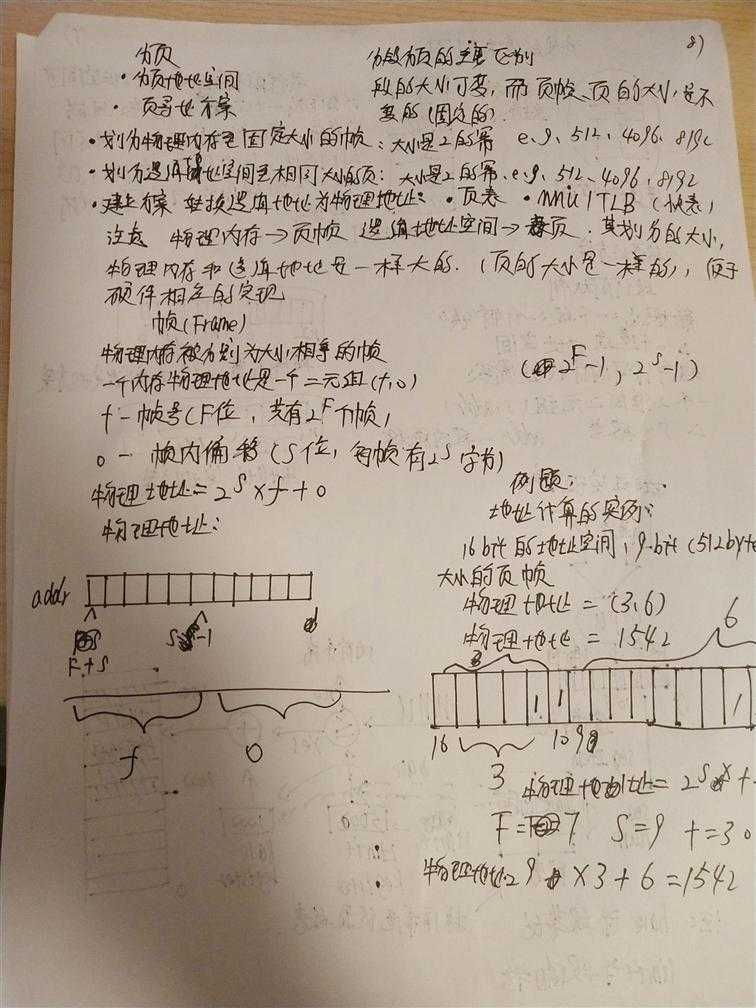 8)
分页
· 分页地址空间
· 页寻址方案
分段分页的主要区别
段的大小可变,而页帧、页的大小,是不
变的(固定的)
· 划分物理内存至固定大小的帧:大小是2的幂 e.g、512、4096、8192
· 划分逻辑地址空间至相同大小的页:大小是2的幂、e.g、512、4096、8192
· 建立方案 转换逻辑地址为物理地址: · 页表 · MMU ITLB (快表)
注意 物理内存→页帧 逻辑地址空间→页. 其划分的大小,
物理内存和逻辑地址是一样大的.(页的大小是一样的),便于
硬件相应的实现
帧(Frame)
物理内存被分割为大小相等的帧
一个内存物理地址是一个二元组(f,o)
(2^F-1, 2^S-1)
f - 帧号(F位, 共有2^F个帧)
o - 帧内偏移(S位, 每帧有2^S字节)
物理地址=2^S×f+o
物理地址:
例题:
地址计算的实例:
16 bit的地址空间,9-bit (512byte
大小的页帧
物理地址 = (3,6)
物理地址 = 1542
addr
F+S
S -1
f
o
3
6
1 1 1
16 10 9
3
物理地址= 2^S × f
F= 7 S=9 f=3 o
物理地址2^9 ×3+6=1542